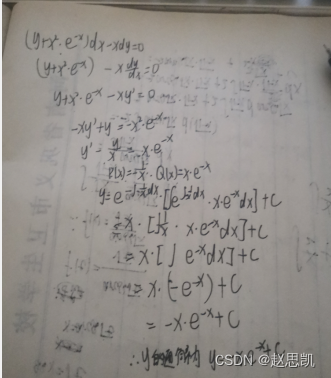 (y+x²·e^{-x})dx-xdy=0
(y+x²·e^{-x}) - x dy/dx =0
y+x²·e^{-x} - xy'=0
-xy'+y=-x²·e^{-x}
y' - y/x = x·e^{-x}
P(x)=-1/x Q(x)=x·e^{-x}
y=e^{-∫-1/x dx}·[∫e^{∫-1/x dx}·x·e^{-x}dx]+C
= x·[∫1/x · x·e^{-x}dx]+C
= x·[∫e^{-x}dx]+C
= x·(-e^{-x})+C
= -x·e^{-x}+C
∴y
CSDN @赵思凯